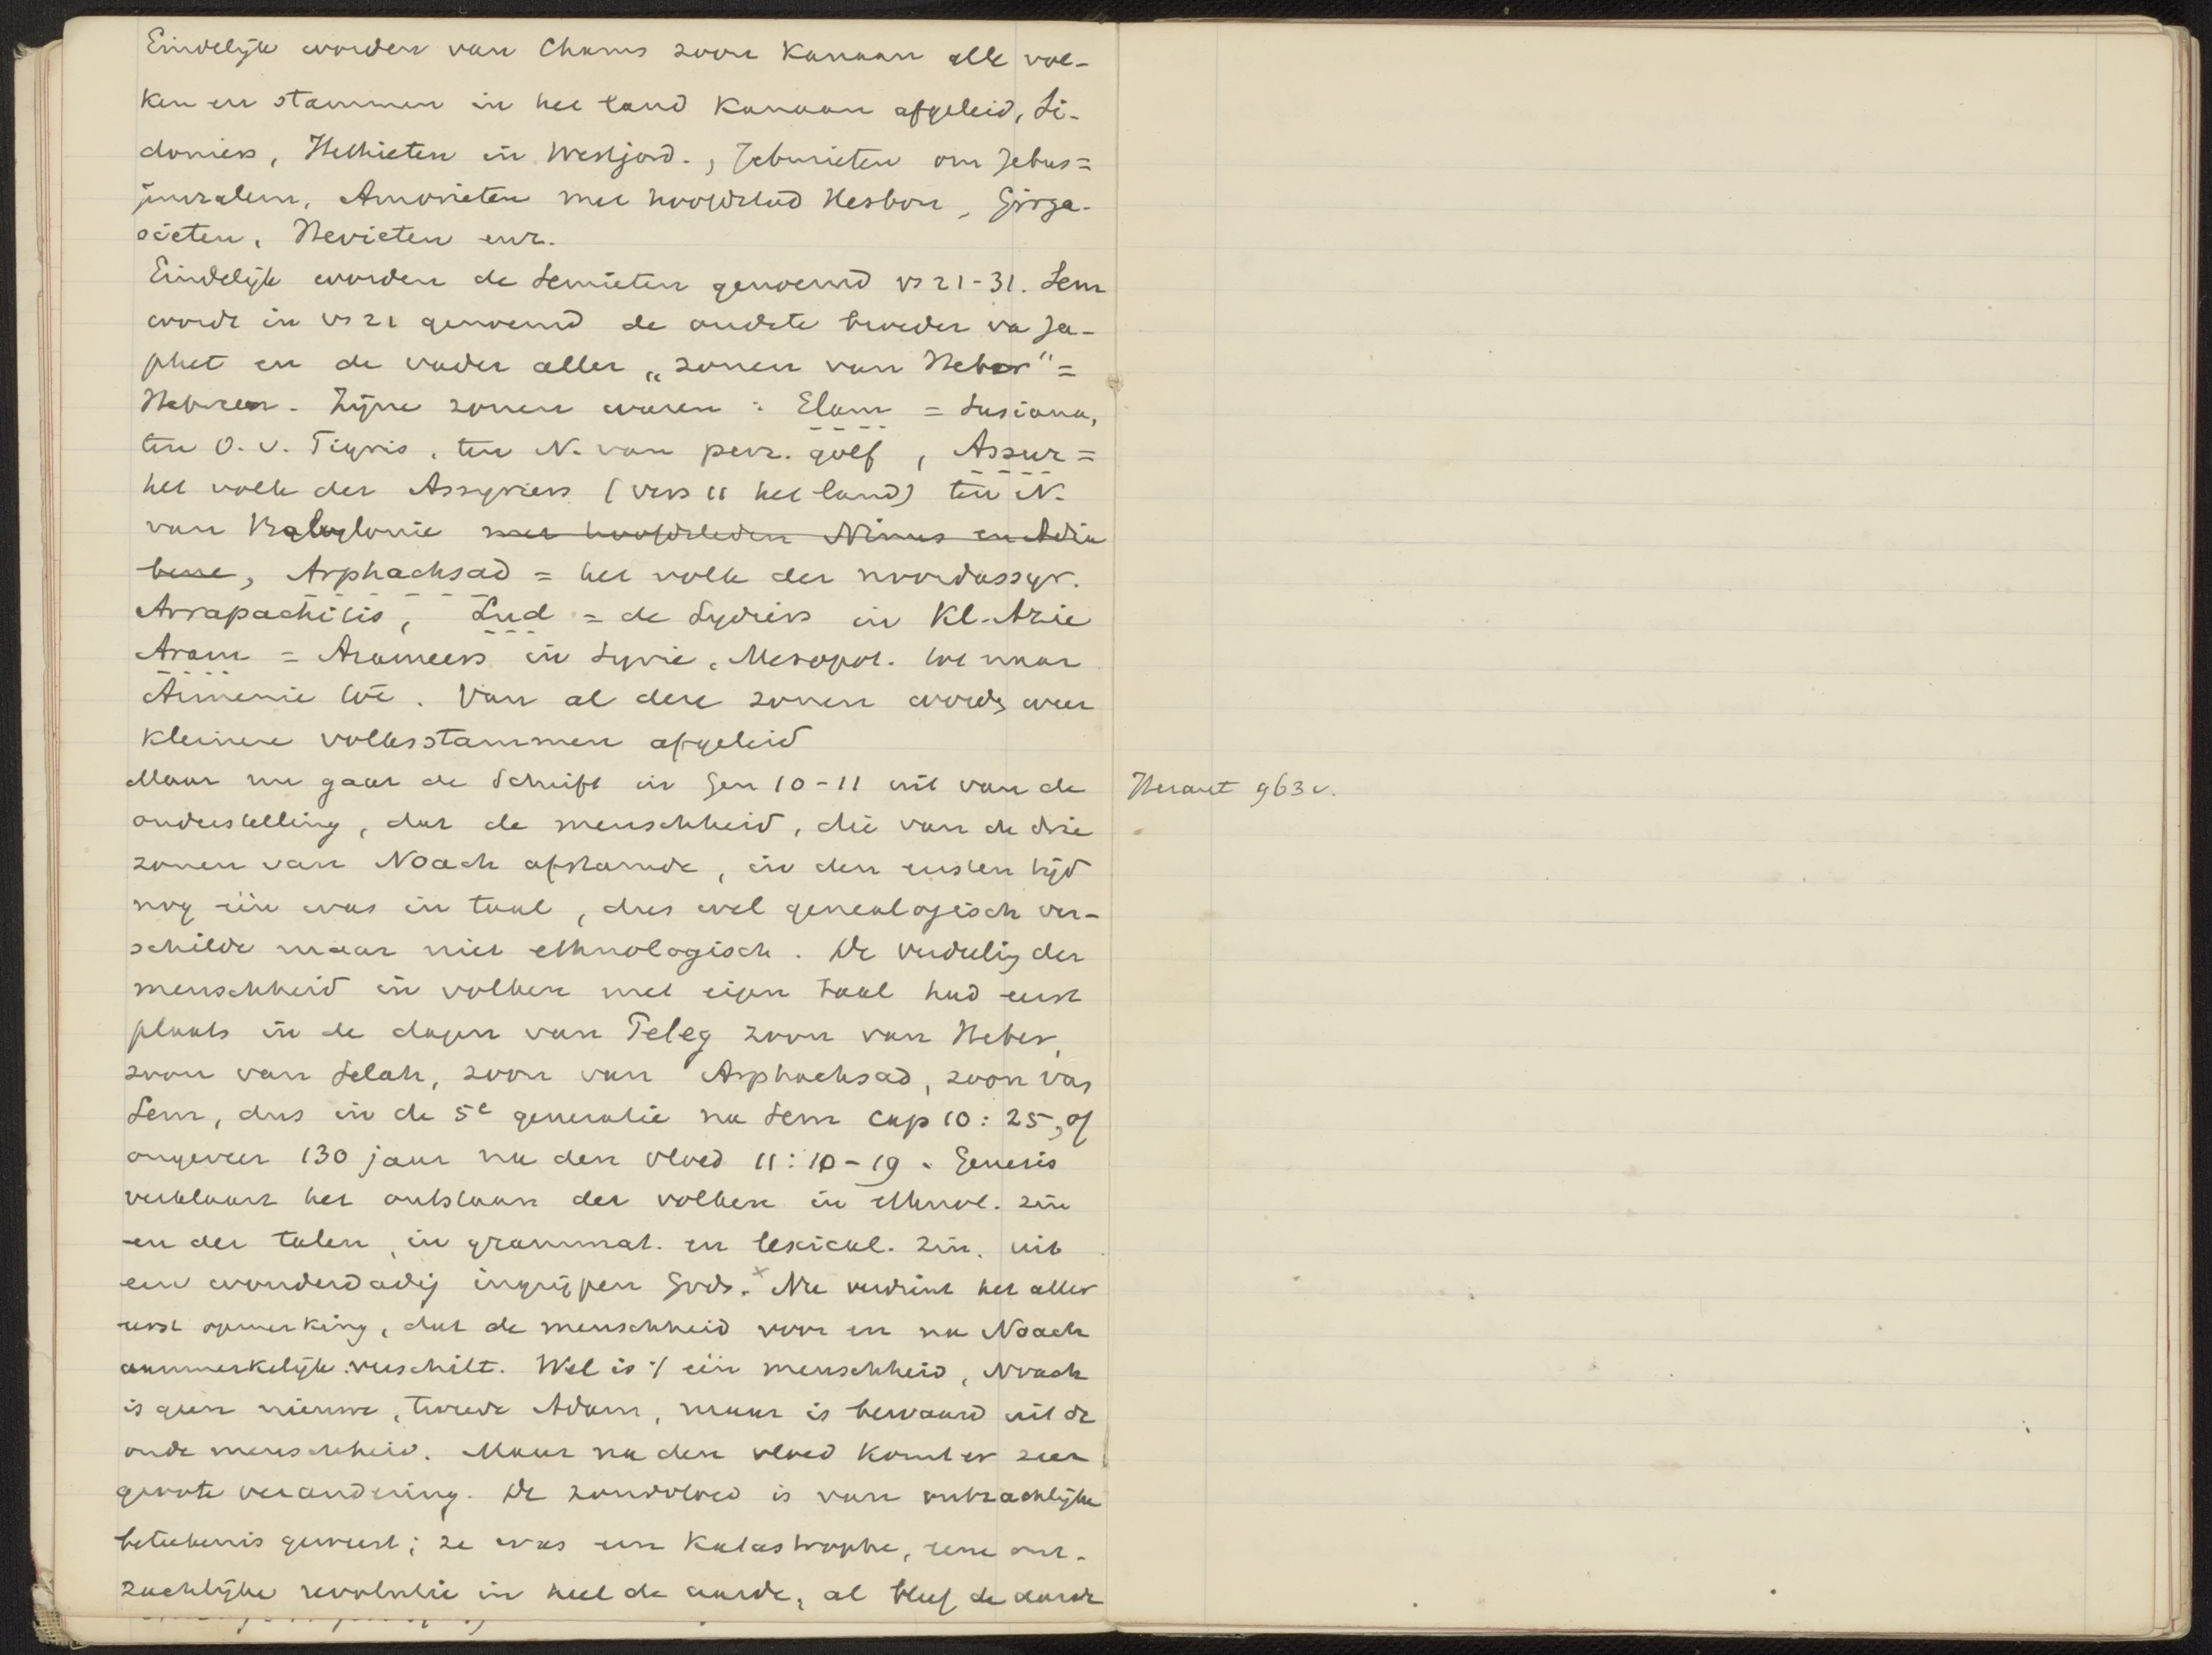 Eindelijk worden van Chams zoon Kanaan alle vol-
ken en stammen in het land Kanaan afgeleid, Si-
doniers, Hethieten in Westjord., Jebusieten om Jebus =
jeruzalem, Amorieten met hoofdstad Hesbon, Girga-
sieten, Hevieten enz.
Eindelijk worden de Semieten genoemd vs 21-31. Sem
wordt in vs 21 genoemd de oudste broeder va Ja-
phet en de vader aller „zonen van Heber" =
Hebreen. Zijne zonen waren : Elam = Susiana,
ten O. v. Tigris, ten N. van perz. golf, Assur =
het volk der Assyriers (vers 11 het land) ten N.
van Babylonie met hoofdsteden Ninus en Adia
bene, Arphachsad = het volk der noordassyr.
Arrapachitis, Lud = de Lydiers in Kl. Azie
Aram = Arameers in Syrie, Mesopot. tot naar
Armenie toe. Van al deze zonen words weer
kleinere volksstammen afgeleid
Maar nu gaat de Schrift in Gen 10-11 uit van de
onderstelling, dat de menschheid, die van de drie
zonen van Noach afstamde, in den eersten tijd
nog één was in taal, dus wel genealogisch ver-
schilde maar niet ethnologisch. De verdeeling der
menschheid in volken met eigen taal had eerst
plaats in de dagen van Peleg zoon van Heber,
zoon van Selah, zoon van Arphachsad, zoon van
Sem, dus in de 5e generatie na Sem cap 10 : 25, of
ongeveer 130 jaar na den vloed 11 : 10-19. Genesis
verklaart het ontstaan der volken in ethnol. zin
en der talen, in grammat. en lexical. zin, uit
een wonderdadig ingrijpen Gods. x Nu verdient het aller
eerst opmerking, dat de menschheid voor en na Noach
aanmerkelijk verschilt. Wel is 't één menschheid, Noach
is geen nieuwe, tweede Adam, maar is bewaard uit de
oude menschheid. Maar na den vloed komt er zeer
groote verandering. De zondvloed is van ontzachlijke
beteekenis geweest; ze was een Katastrophe, eene ont-
zachlijke revolutie in heel de aarde, al bleef de aarde
Heraut 963 v.